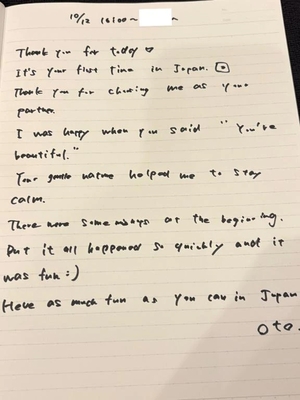 10/12 16:00~ ~
Thank you for today ♡
It's your first time in Japan. 🇯🇵
Thank you for choting me as your
partner.
I was happy when you said "You're
beautiful."
Your gentle nature helped me to stay
calm.
There were some at the beginning.
But it all happened so quickly and it
was fun :)
Have as much fun as you can in Japan
Oto.